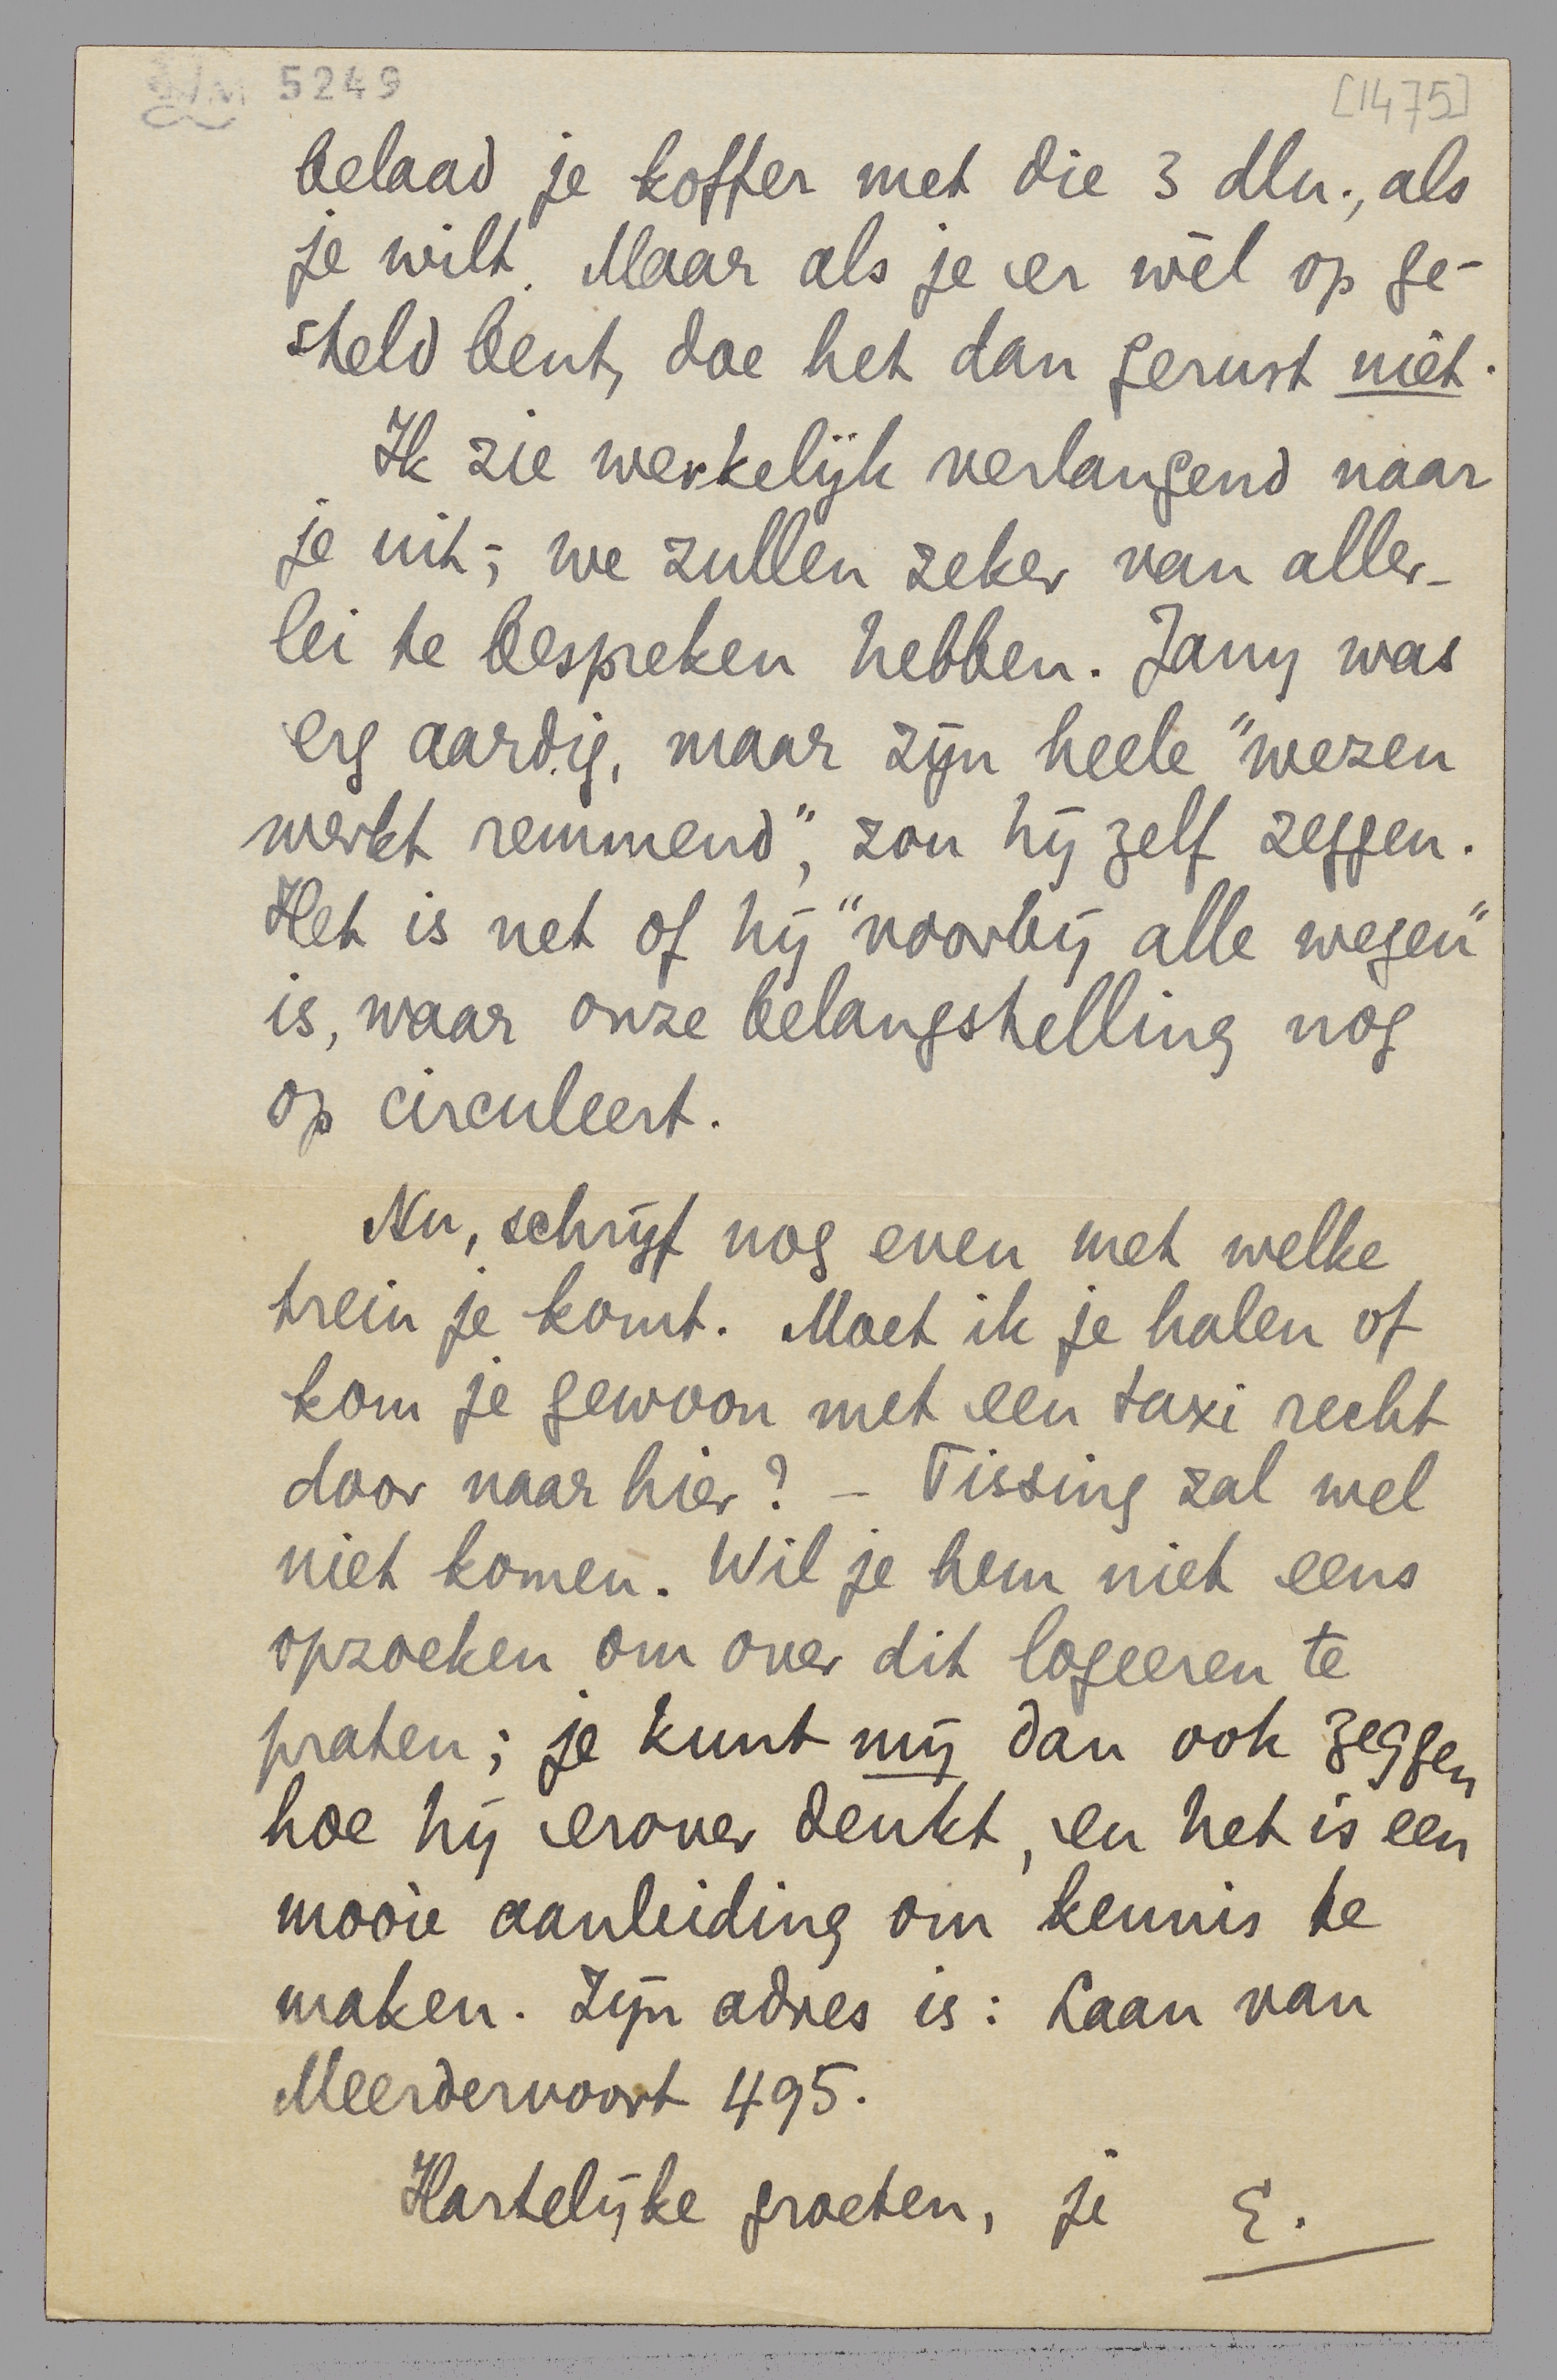 5249
[1475]
belaad je koffer met die 3 dln., als
je wilt. Maar als je er wèl op ge-
steld bent, doe het dan gerust niet.
Ik zie werkelijk verlangend naar
je uit; we zullen zeker van aller-
lei te bespreken hebben. Jany was
erg aardig, maar zijn heele "wezen
werkt remmend", zou hij zelf zeggen.
Het is net of hij "voorbij alle wegen"
is, waar onze belangstelling nog
op circuleert.
Nu, schrijf nog even met welke
trein je komt. Moet ik je halen of
kom je gewoon met een taxi recht
door naar hier? - Tissing zal wel
niet komen. Wil je hem niet eens
opzoeken om over dit logeeren te
praten; je kunt mij dan ook zeggen
hoe hij erover denkt, en het is een
mooie aanleiding om kennis te
maken. Zijn adres is: Laan van
Meerdervoort 495.
Hartelijke groeten, je E.